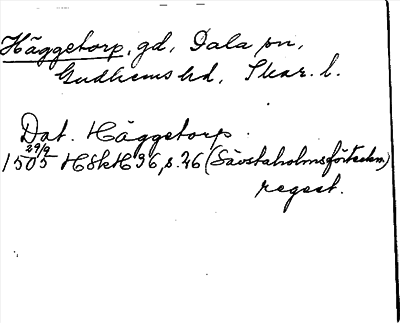 Häggetorp, gd, Dala sn,
Gudhems hd, Skar. l.
Dat. Häggetorp.
1505 29/9 HSkH 36, s. 26 (Sävstaholmsförteckn.)
regest.